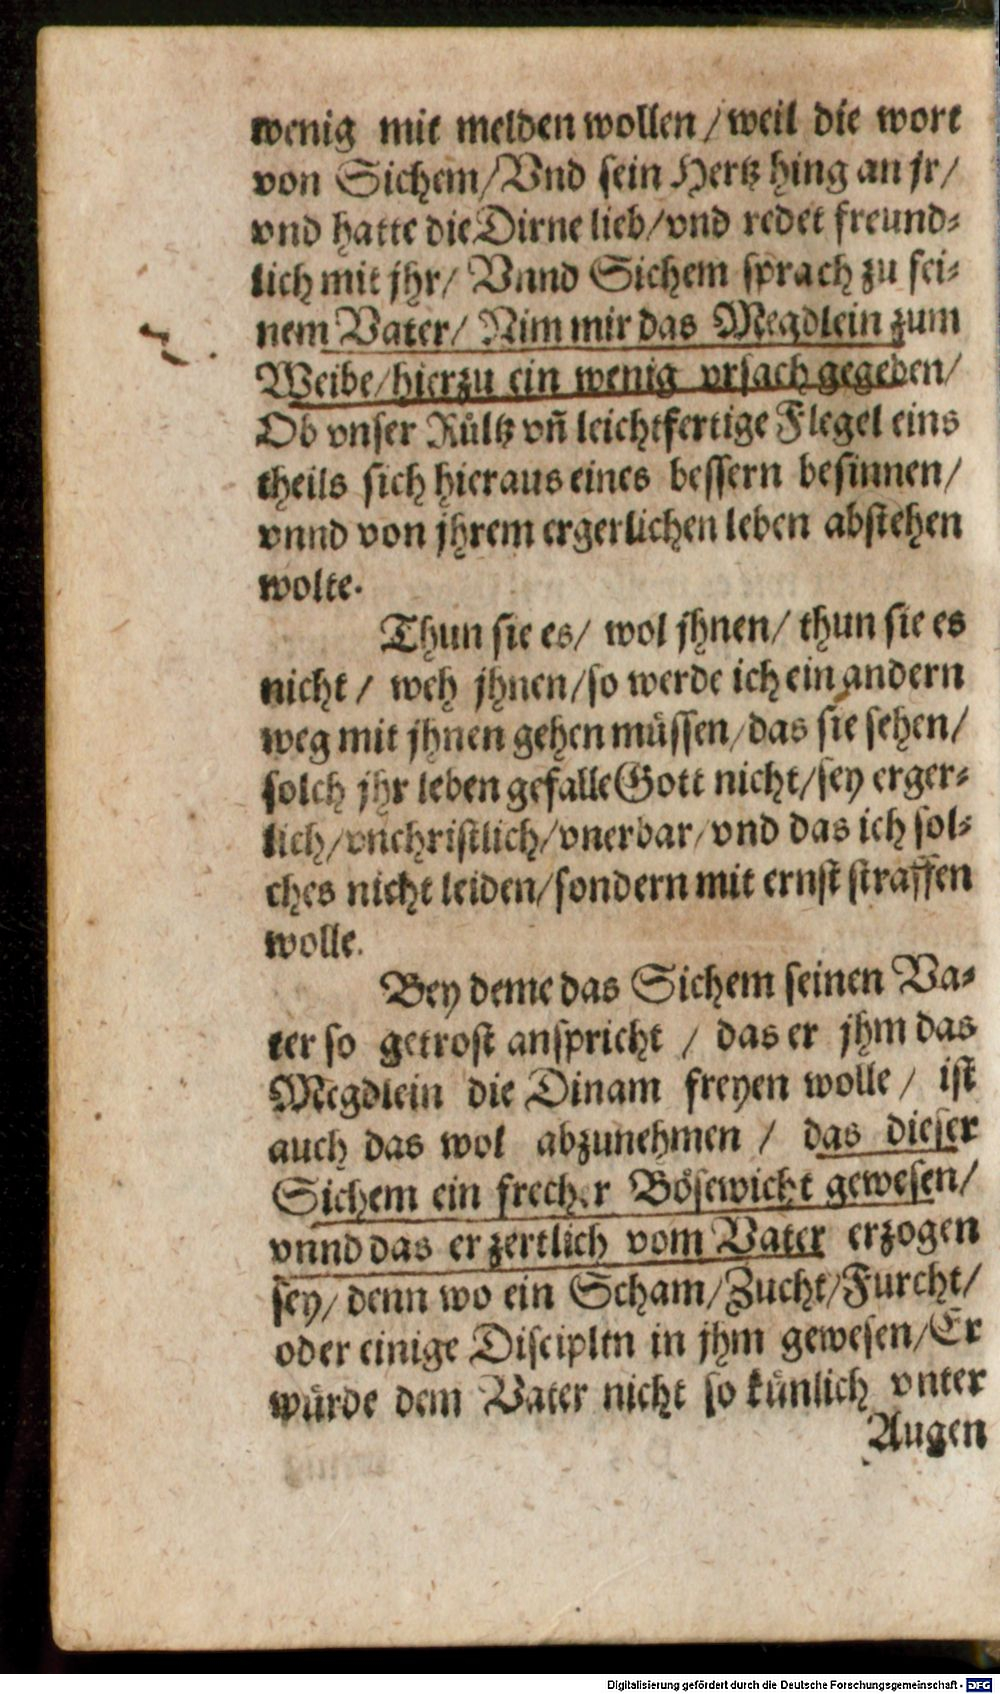 wenig mit melden wollen / weil die wort
von Sichem/Vnd sein Hertz hing an jr/
vnd hatte die Dirne lieb/vnd redet freund-
lich mit jhr/ Vnnd Sichem sprach zu sei-
nem Vater/ Nim mir das Megdlein zum
Weibe/hierzu ein wenig vrsach gegeben/
Ob vnser Rültz vñ leichtfertige Flegel eins
theils sich hieraus eines bessern besinnen/
vnnd von jhrem ergerlichen leben abstehen
wolte.
Thun sie es/ wol jhnen/ thun sie es
nicht / weh jhnen/so werde ich ein andern
weg mit jhnen gehen müssen/das sie sehen/
solch jhr leben gefalle Gott nicht/sey erger-
lich/vnchristlich/vnerbar/vnd das ich sol-
ches nicht leiden/sondern mit ernst straffen
wolle.
Bey deme das Sichem seinen Va-
ter so getrost anspricht / das er jhm das
Megdlein die Dinam freyen wolle / ist
auch das wol abzunehmen / das dieser
Sichem ein frecher Bösewicht gewesen/
vnnd das er zertlich vom Vater erzogen
sey/ denn wo ein Scham/Zucht/Furcht/
oder einige Disciplin in jhm gewesen/Er
würde dem Vater nicht so künlich vnter
Augen
Digitalisierung gefördert durch die Deutsche Forschungsgemeinschaft - DFG